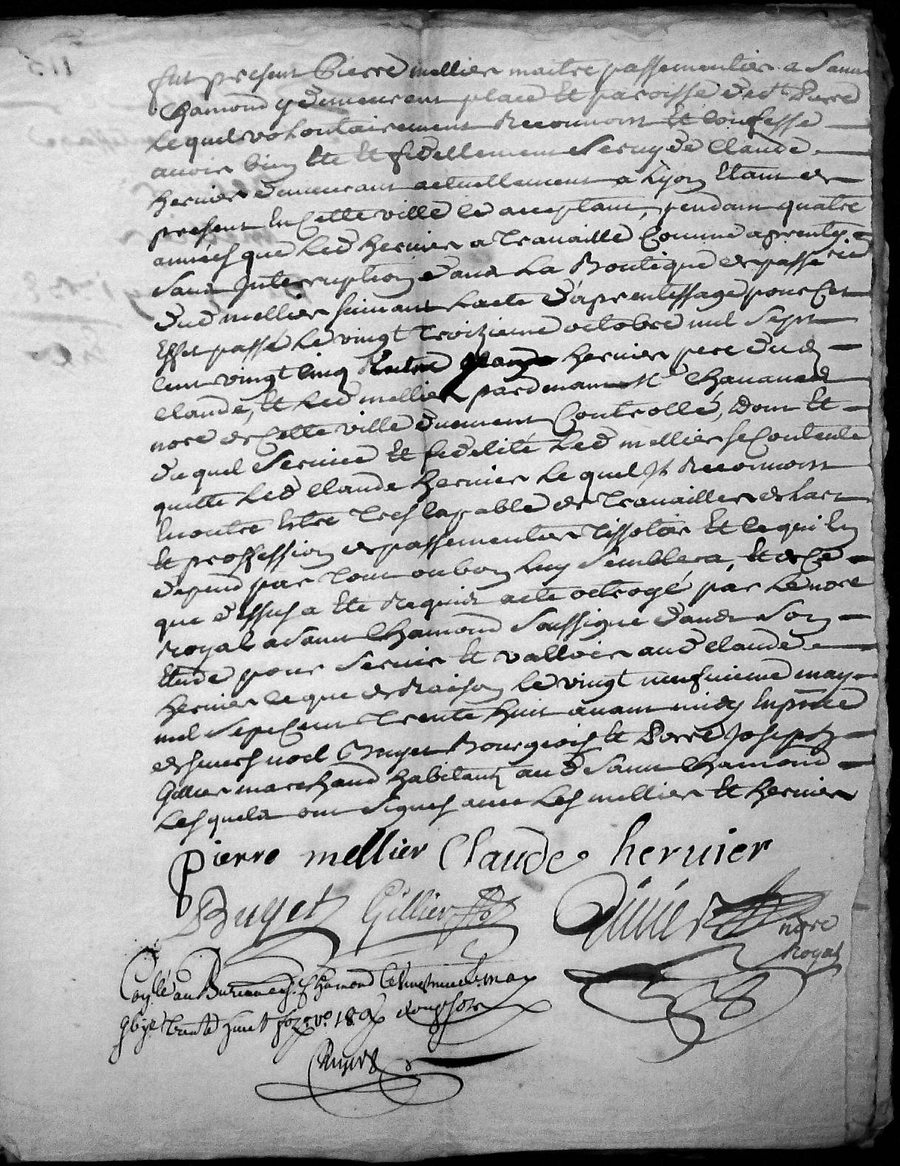 fut present Pierre mellier maitre passementier a Saint
Chamond y demeurant place et paroisse St Pierre
Lequel volontairement Reconnoit Et Confesse
avoir bien Ete Et fidellement Servy de Claude
hervier demeurant actuellement a Lyon Etant de
present En Cette ville Le acceptant, pendant quatre
années que Led hervier a Travaillé Comme aprentif
Sans Interruption dans La Boutique de passe
dud mellier suivant Lacte d'aprentissage pour Cet
Effet passé Le vingt Troizieme octobre mil Sept
Cent vingt Cinq Entre hervier pere dud
Claude, Et Led mellier pardevant Me Chavanne
nore de Cette ville duement Controllé, Dont Et
duquel Service Et fidelité Led mellier se Contente
quitte Led Claude hervier Lequel Il Reconnoit
En outre Etre Tres Capable de Travailler de Lart
Et proffession de passementier Tissotier Et ce qui En
depend par Tout ou bon Luy Semblera, Et de Ce
que dessus a Eté Requis acte octroyé par Le nore
Royal a Saint Chamond Soussigné dans Son
Etude pour Servir Et valloir aud Claude
hervier ce que de Raison Le vingt neufvieme may
mil Sept Cent Trente huit avant midy En pnce
de Noel Buyet Bourgeois Et Pierre Joseph
Gillier marchand habitants aud Saint Chamond
Lesquels ont Signes avec Les mellier Et hervier
pierre mellier Claude hervier
Buyet Gillier
nore
Royal
au Bureau de St Chamond Le may
trente huit fo vo 18 douze sols